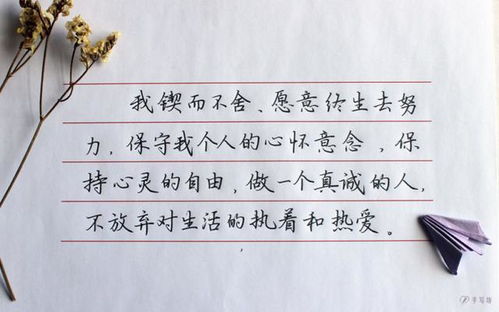 我锲而不舍、愿意终生去努
力，保守我个人的心怀意念，保
持心灵的自由，做一个真诚的人，
不放弃对生活的执着和热爱。
手写场